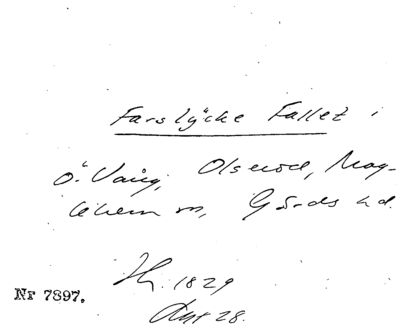 Farslycke Fallet i
Ö. Vång, Olseröd, Mag-
lehem sn, Gärds hd.
Nr 7897.
1829
28.